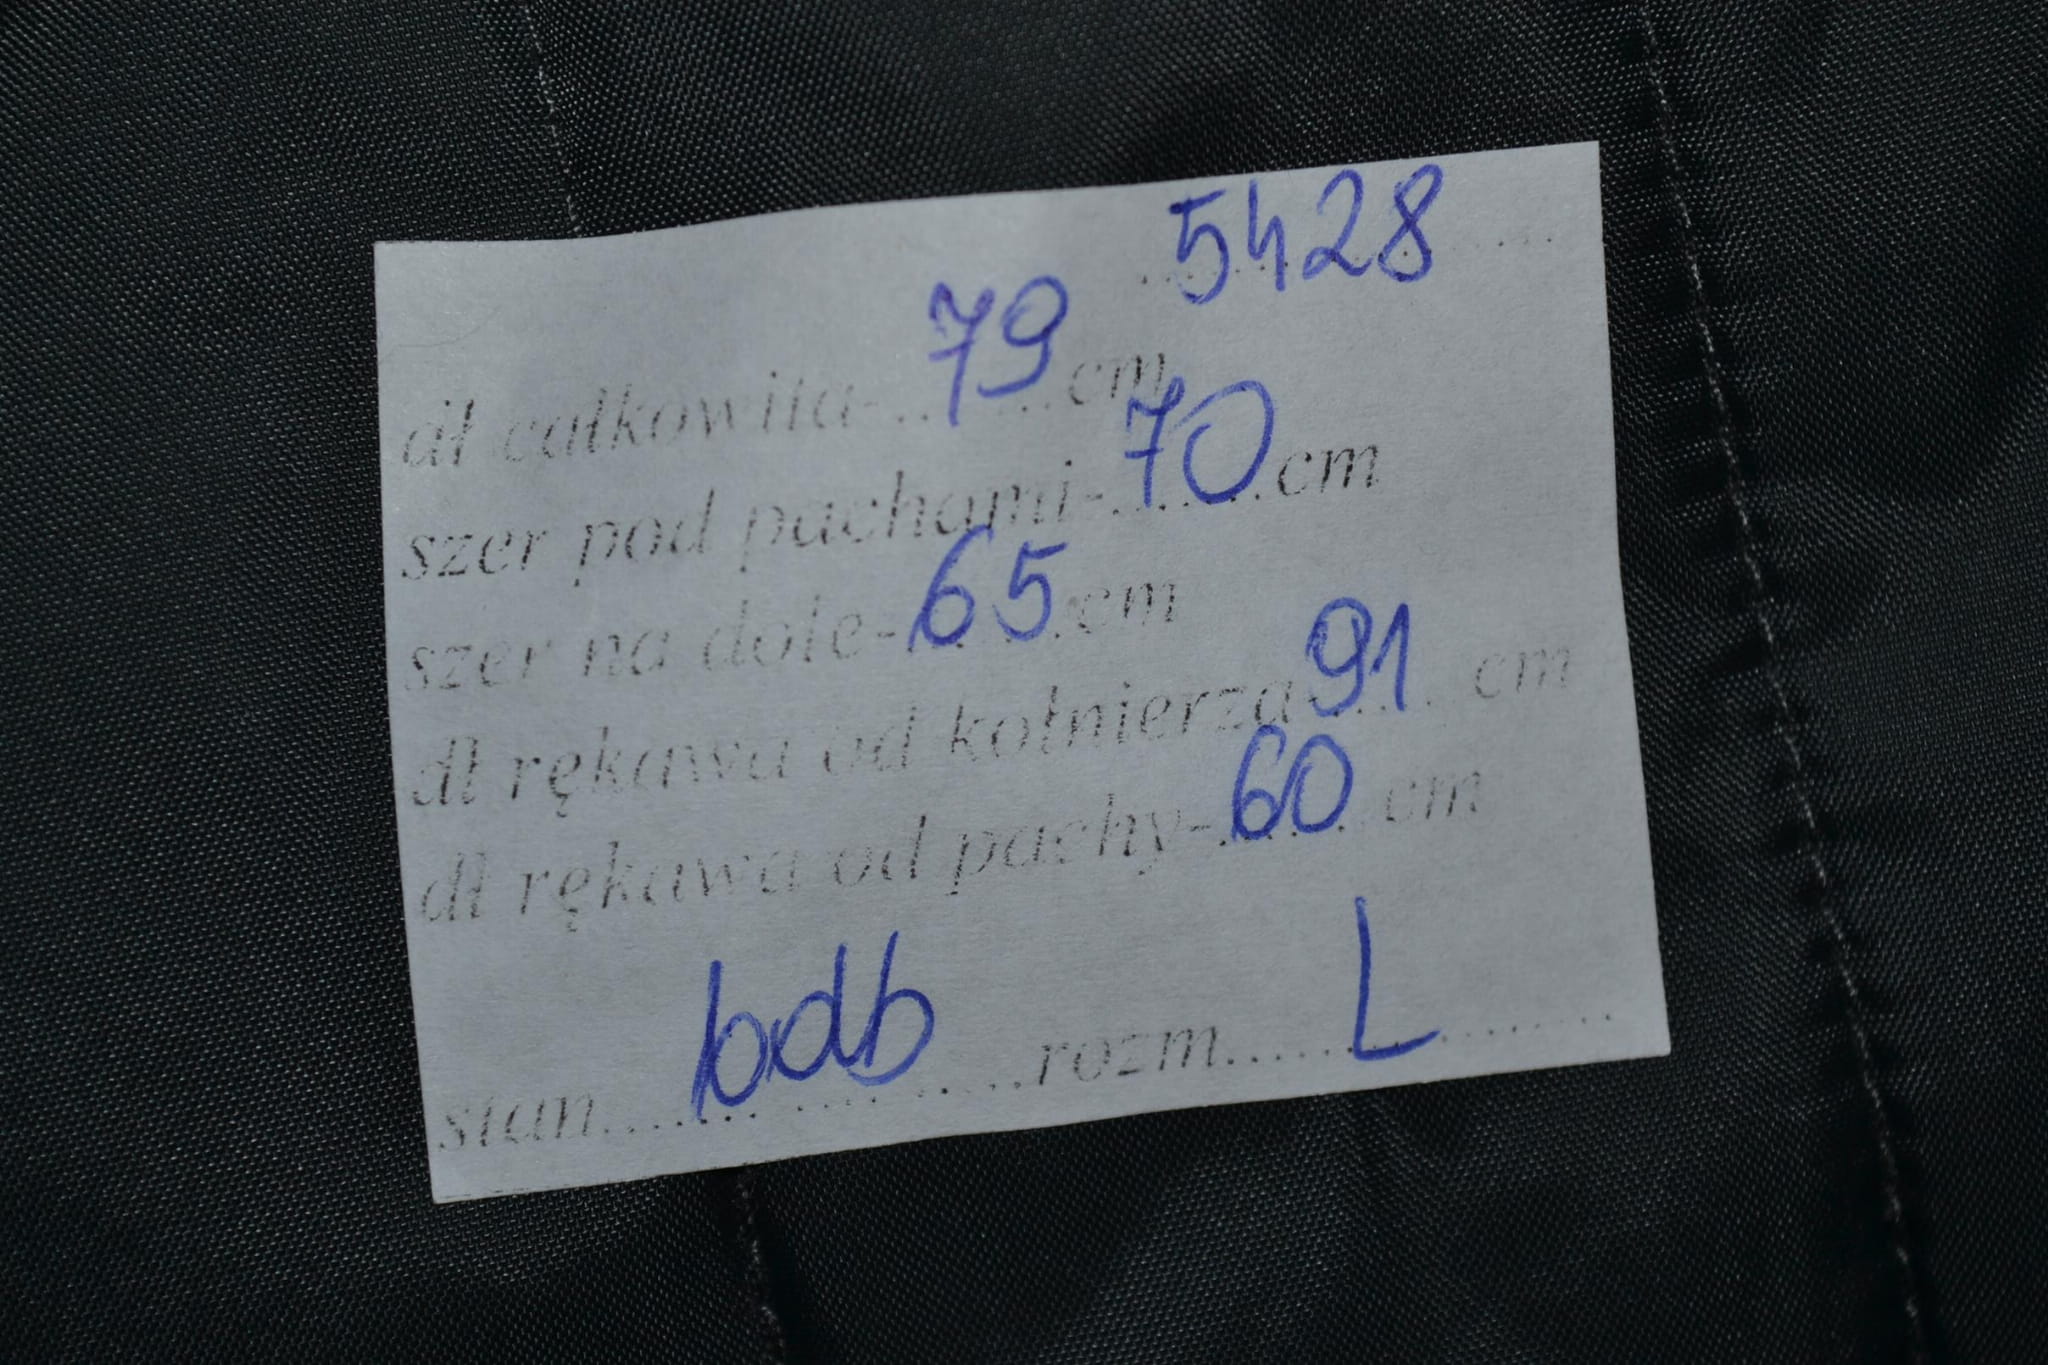 5428
dł całkowita-79cm
szer pod pachami-70cm
szer na dole-65cm
dł rękawa od kołnierza-91cm
dł rękawa od pachy-60cm
stan....bdb....rozm....L....